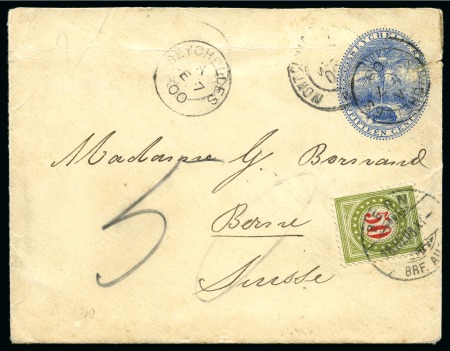 SEYCHELLES
FIFTEEN CENTS
SEYCHELLES
E
7
00
Madame G. Bornand
50
Berne
Suisse
50
BERN
BRF.